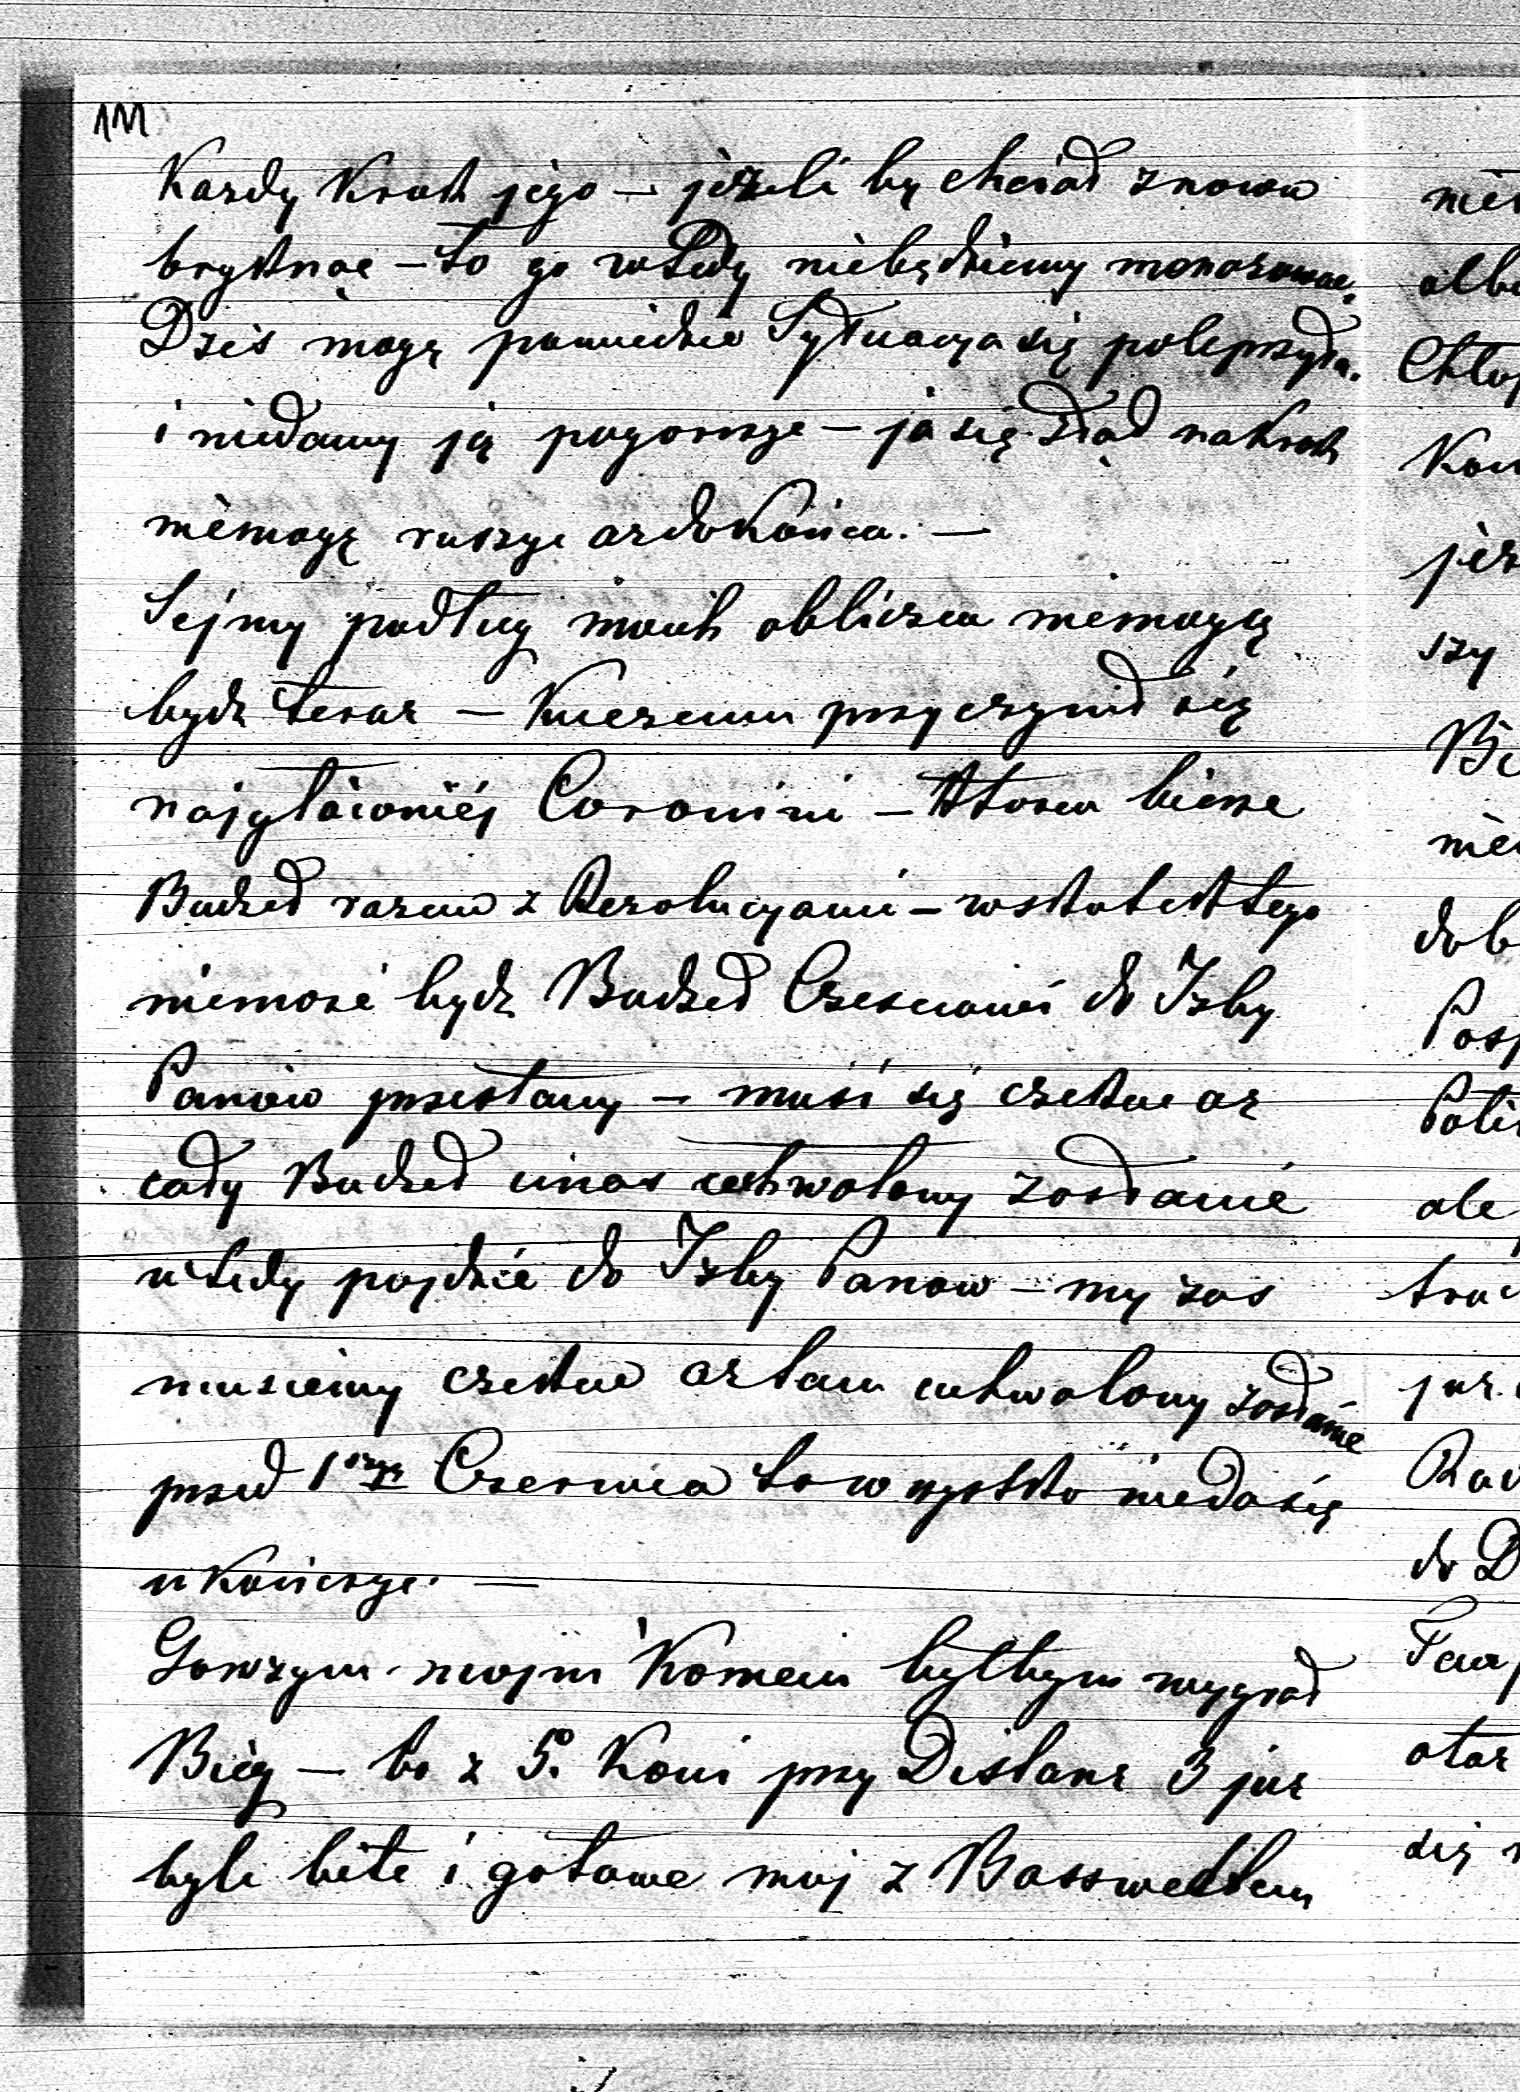 Kazdy Krok jego — jezeli by chciał znowu
bryknąc — to go wtedy niebędziemy menazowac.
Dzis mogę powiedziec Sytuacya się polepszyła.
i niedamy ją pogorszyc — ja się ztąd na krok
niemogę ruszyc az do Konca. —
Sejmy podług moich obliczen niemogą
bydz teraz — Kuczemu przyczynił się
najgłówniéj Coronini — Ktoren bierze
Budzet razem z Rezolucyami — wskutek tego
niemoze bydz Budzet Czesciowo do Izby
Panów przesłany — musi się czekac az
cały Budzet unas uchwalony zostanie
wtedy pojdzie do Izby Panow — my zas
musiemy czekac az tam uchwalony zostanie
przed 1szym Czerwca to wszystko niedasię
ukończyc. —
Gorszym mojm Koniem byłbym wygrał
Bieg — bo z 5. Koni przy Distanz 3 juz
byli bite i gotowe moj z Basswedlem
nie
albo
Chłop
Kon
jez
szy
Bi
nie
dob
Posp
Poli
ale
trac
juz
Rad
do D
Tar
otoz
się